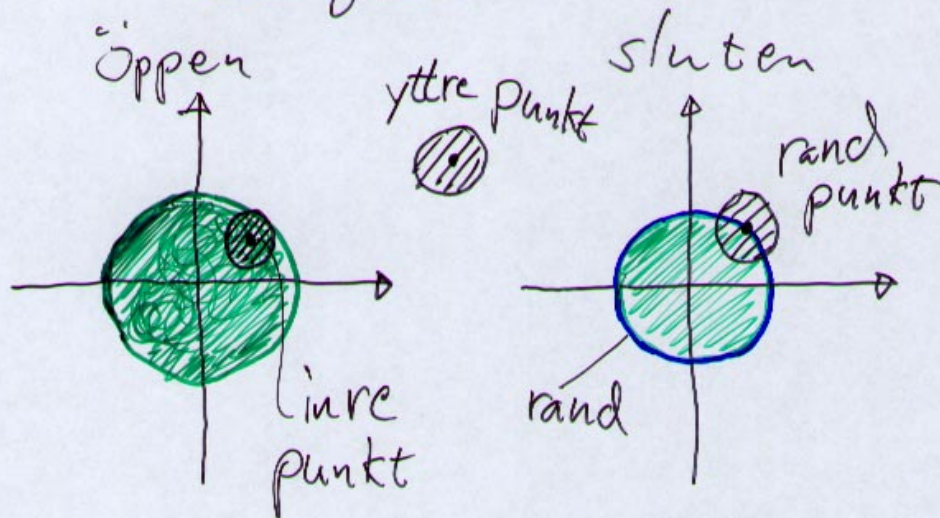 öppen
yttre punkt
sluten
rand
punkt
inre
punkt
rand